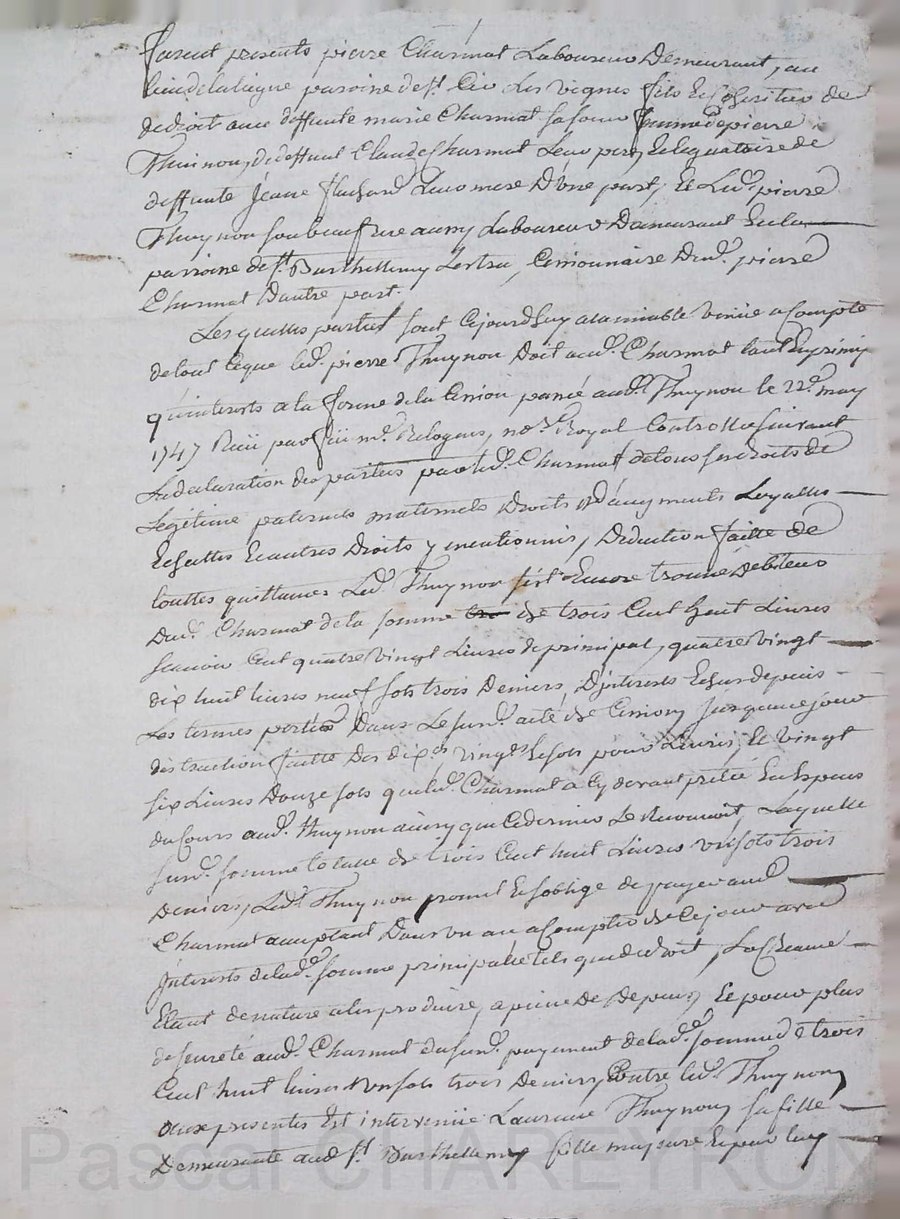 furent presents pierre Charmat Laboureur Demeurant, au
lieu de la ligne paroisse de st. Cir Les vignes fils Et heritier de
de droit avec deffunte marie Charmat sa sœur femme de pierre
Thuinon, de deffunt Claude Charmat Leur pere, Et legataire de
deffunte Jeane flachard Leur mere D'une part, Et Led. pierre
Thuynon son beaufrere aussy Laboureur Demeurant En la
parroine de st. Barthellemy Lestra, Cessionnaire Dud. pierre
Charmat D'autre part.
Lesquelles parties sont Cejourd'huy a lamiable venüe a Compte
de tout Ceque led. pierre Thuynon Doit aud. Charmat tant En prinsip
qu'interests a la forme de la Cession passée aud. Thuynon le 22e. may
1747 Reçü par feü me. Relogue, nore. Royal Controllé suivant
La declaration des parties par led. Charmat de tous ses droits de
Legitime paternels maternels Droits d'augments Legalles
Echettes Et autres Droits y mentionnés, Deduction faitte de
touttes quittances Led. Thuynon s'est Encore trouvé Debiteur
Dud. Charmat de la somme de trois Cent huit Livres
scavoir Cent quatre vingt Livres de principal, quatre vingt
dix huit livres neuf sols trois Deniers, D'interests Echus depuis
Les termes portés Dans Le susd. acte de Cession jusqu'a ce jour
distraction faitte Des dixes. vingtes. Et sols pour Livres, Et vingt
six Livres Douze sols que led. Charmat a Cy devant prêté En Especes
du Cours aud. thuynon ainsy que Ce dernier Le Reconnoit, Laquelle
susd. somme totalle de trois Cent huit Livres un sols trois
Deniers, Led. Thuynon promet Et s'oblige de payer aud.
Charmat acceptant Dans un an a Compter de Ce jour avec
Interests de lad. somme principalle tels que de droit, La Creance
Etant de nature a les produire, a peine de Depens, Et pour plus
de sureté aud. Charmat du susd. payement de lad. somme de trois
Cent huit livres un sols trois Deniers, Contre led. Thuynon,
aux presentes Est intervenüe Laurence Thuynon sa fille
Demeurante aud. st. Barthellemy fille majeure Et pour luy
Pascal CHAREYRON